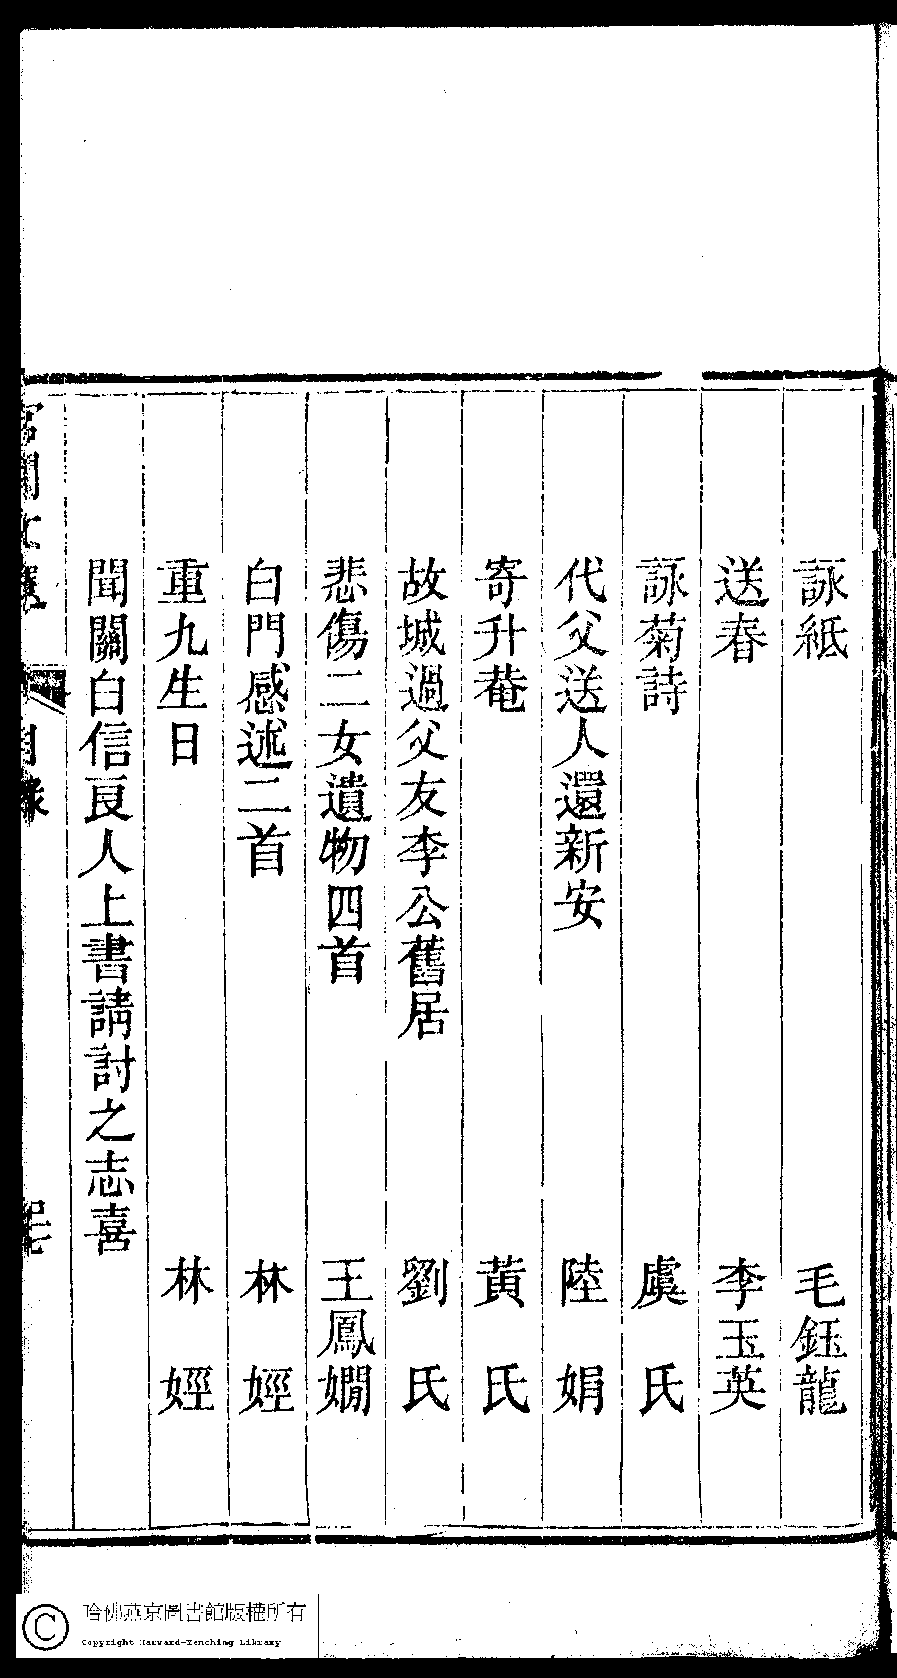 詠紙 毛鈺龍
送春 李玉英
詠菊詩 虞 氏
代父送人還新安 陸 娟
寄升菴 黃 氏
故城過父友李公舊居 劉 氏
悲傷二女遺物四首 王鳳嫺
白門感述二首 林 娙
重九生日 林 娙
聞關白信良人上書請討之志喜
目錄
哈佛燕京圖書館版權所有
Copyright Harvard-Yenching Library